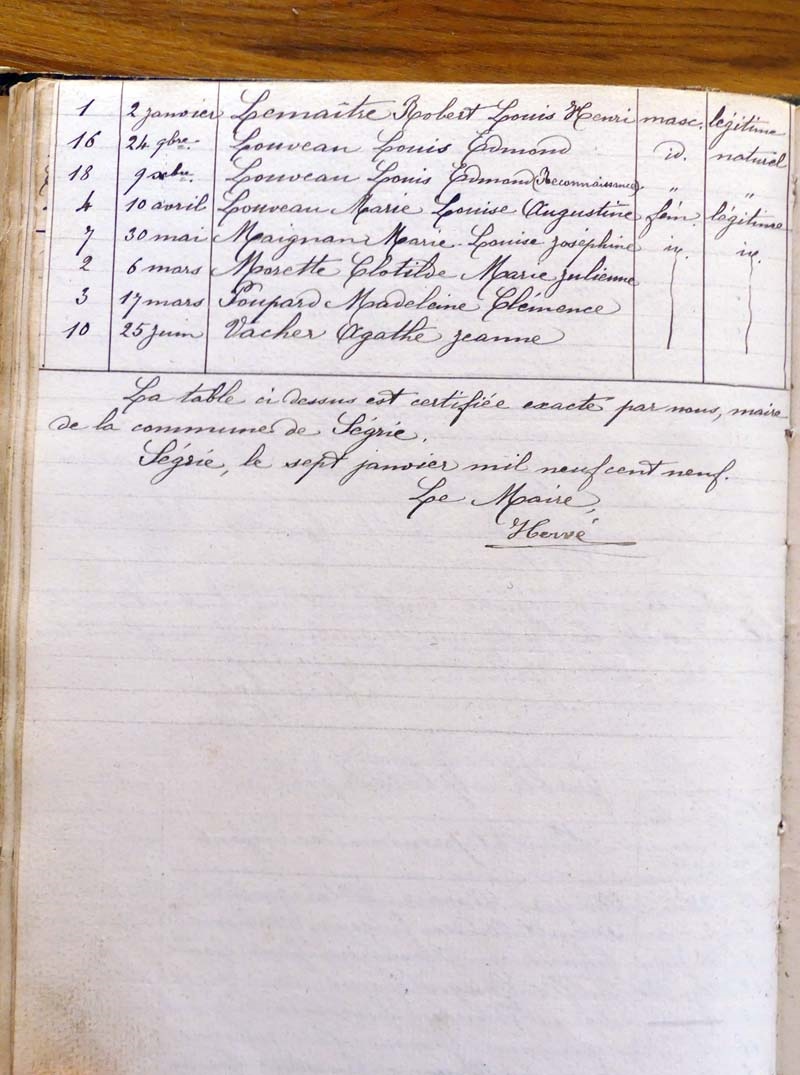 1 2 janvier Lemaître Robert Louis Henri masc. légitime
16 24 9bre. Louveau Louis Edmond id. naturel
18 9 xbre. Louveau Louis Edmond (Reconnaissance). " "
4 10 avril Louveau Marie Louise Augustine fém. légitime
7 30 mai Maignan Marie-Louise Joséphine id. id.
2 6 mars Morette Clotilde Marie Julienne
3 17 mars Poupard Madeleine Clémence
10 25 juin Vacher Agathe Jeanne
La table ci dessus est certifiée exacte par nous, maire
de la commune de Ségrie.
Ségrie, le sept janvier mil neuf cent neuf.
Le Maire,
Hervé